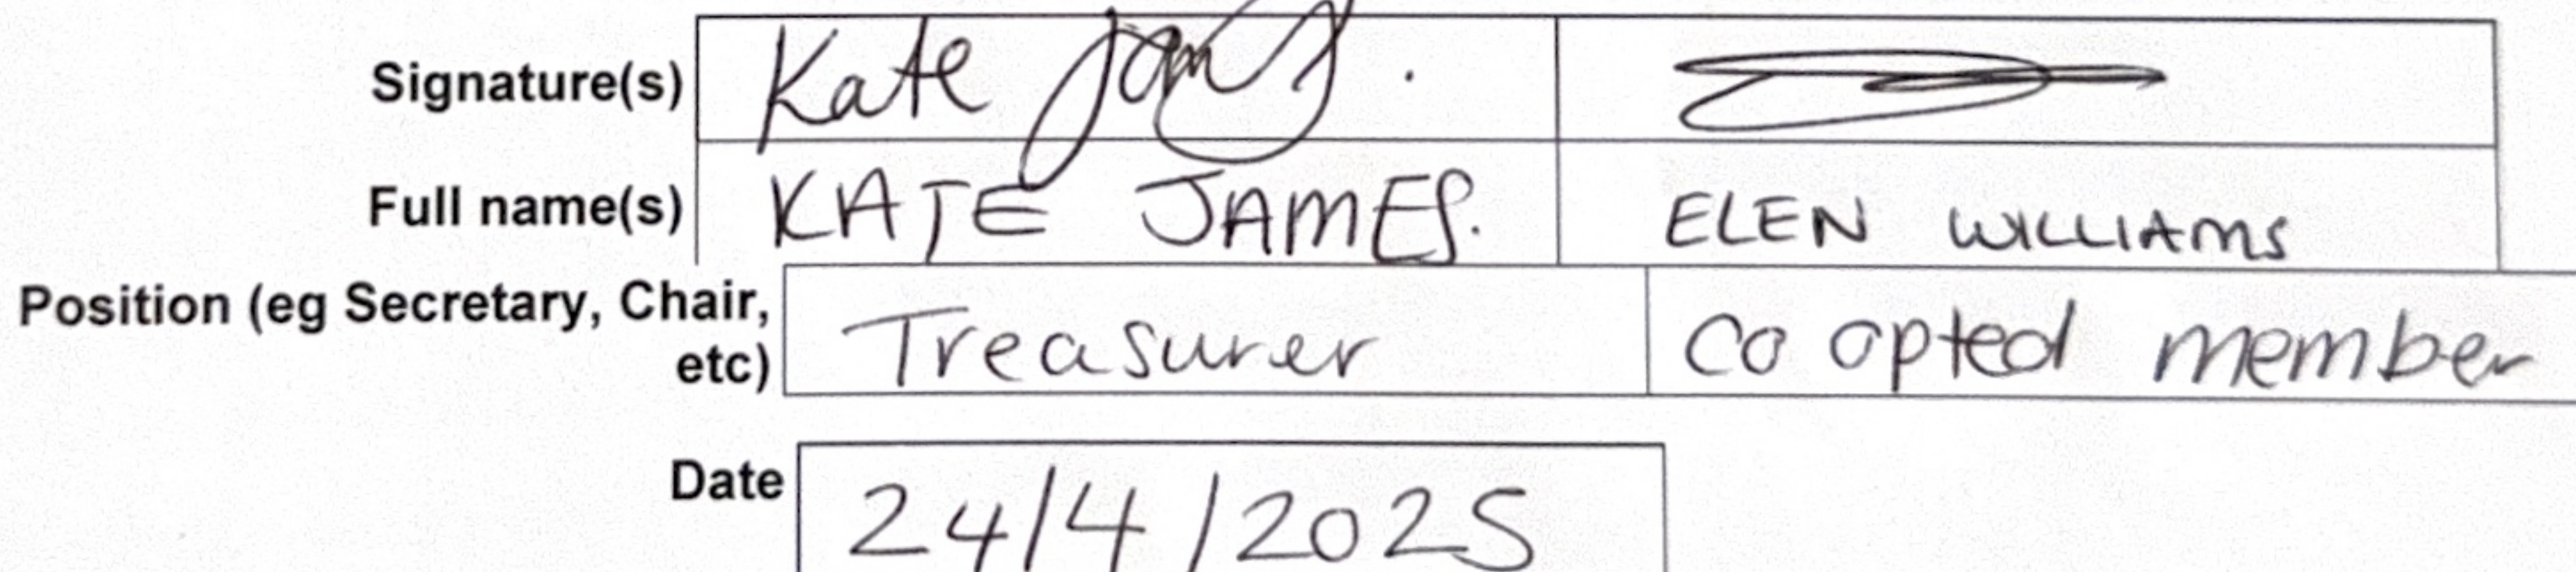 Signature(s) Kate James.
Full name(s) KATE JAMES. ELEN WILLIAMS
Position (eg Secretary, Chair, etc) Treasurer Co opted member
Date 24/4/2025